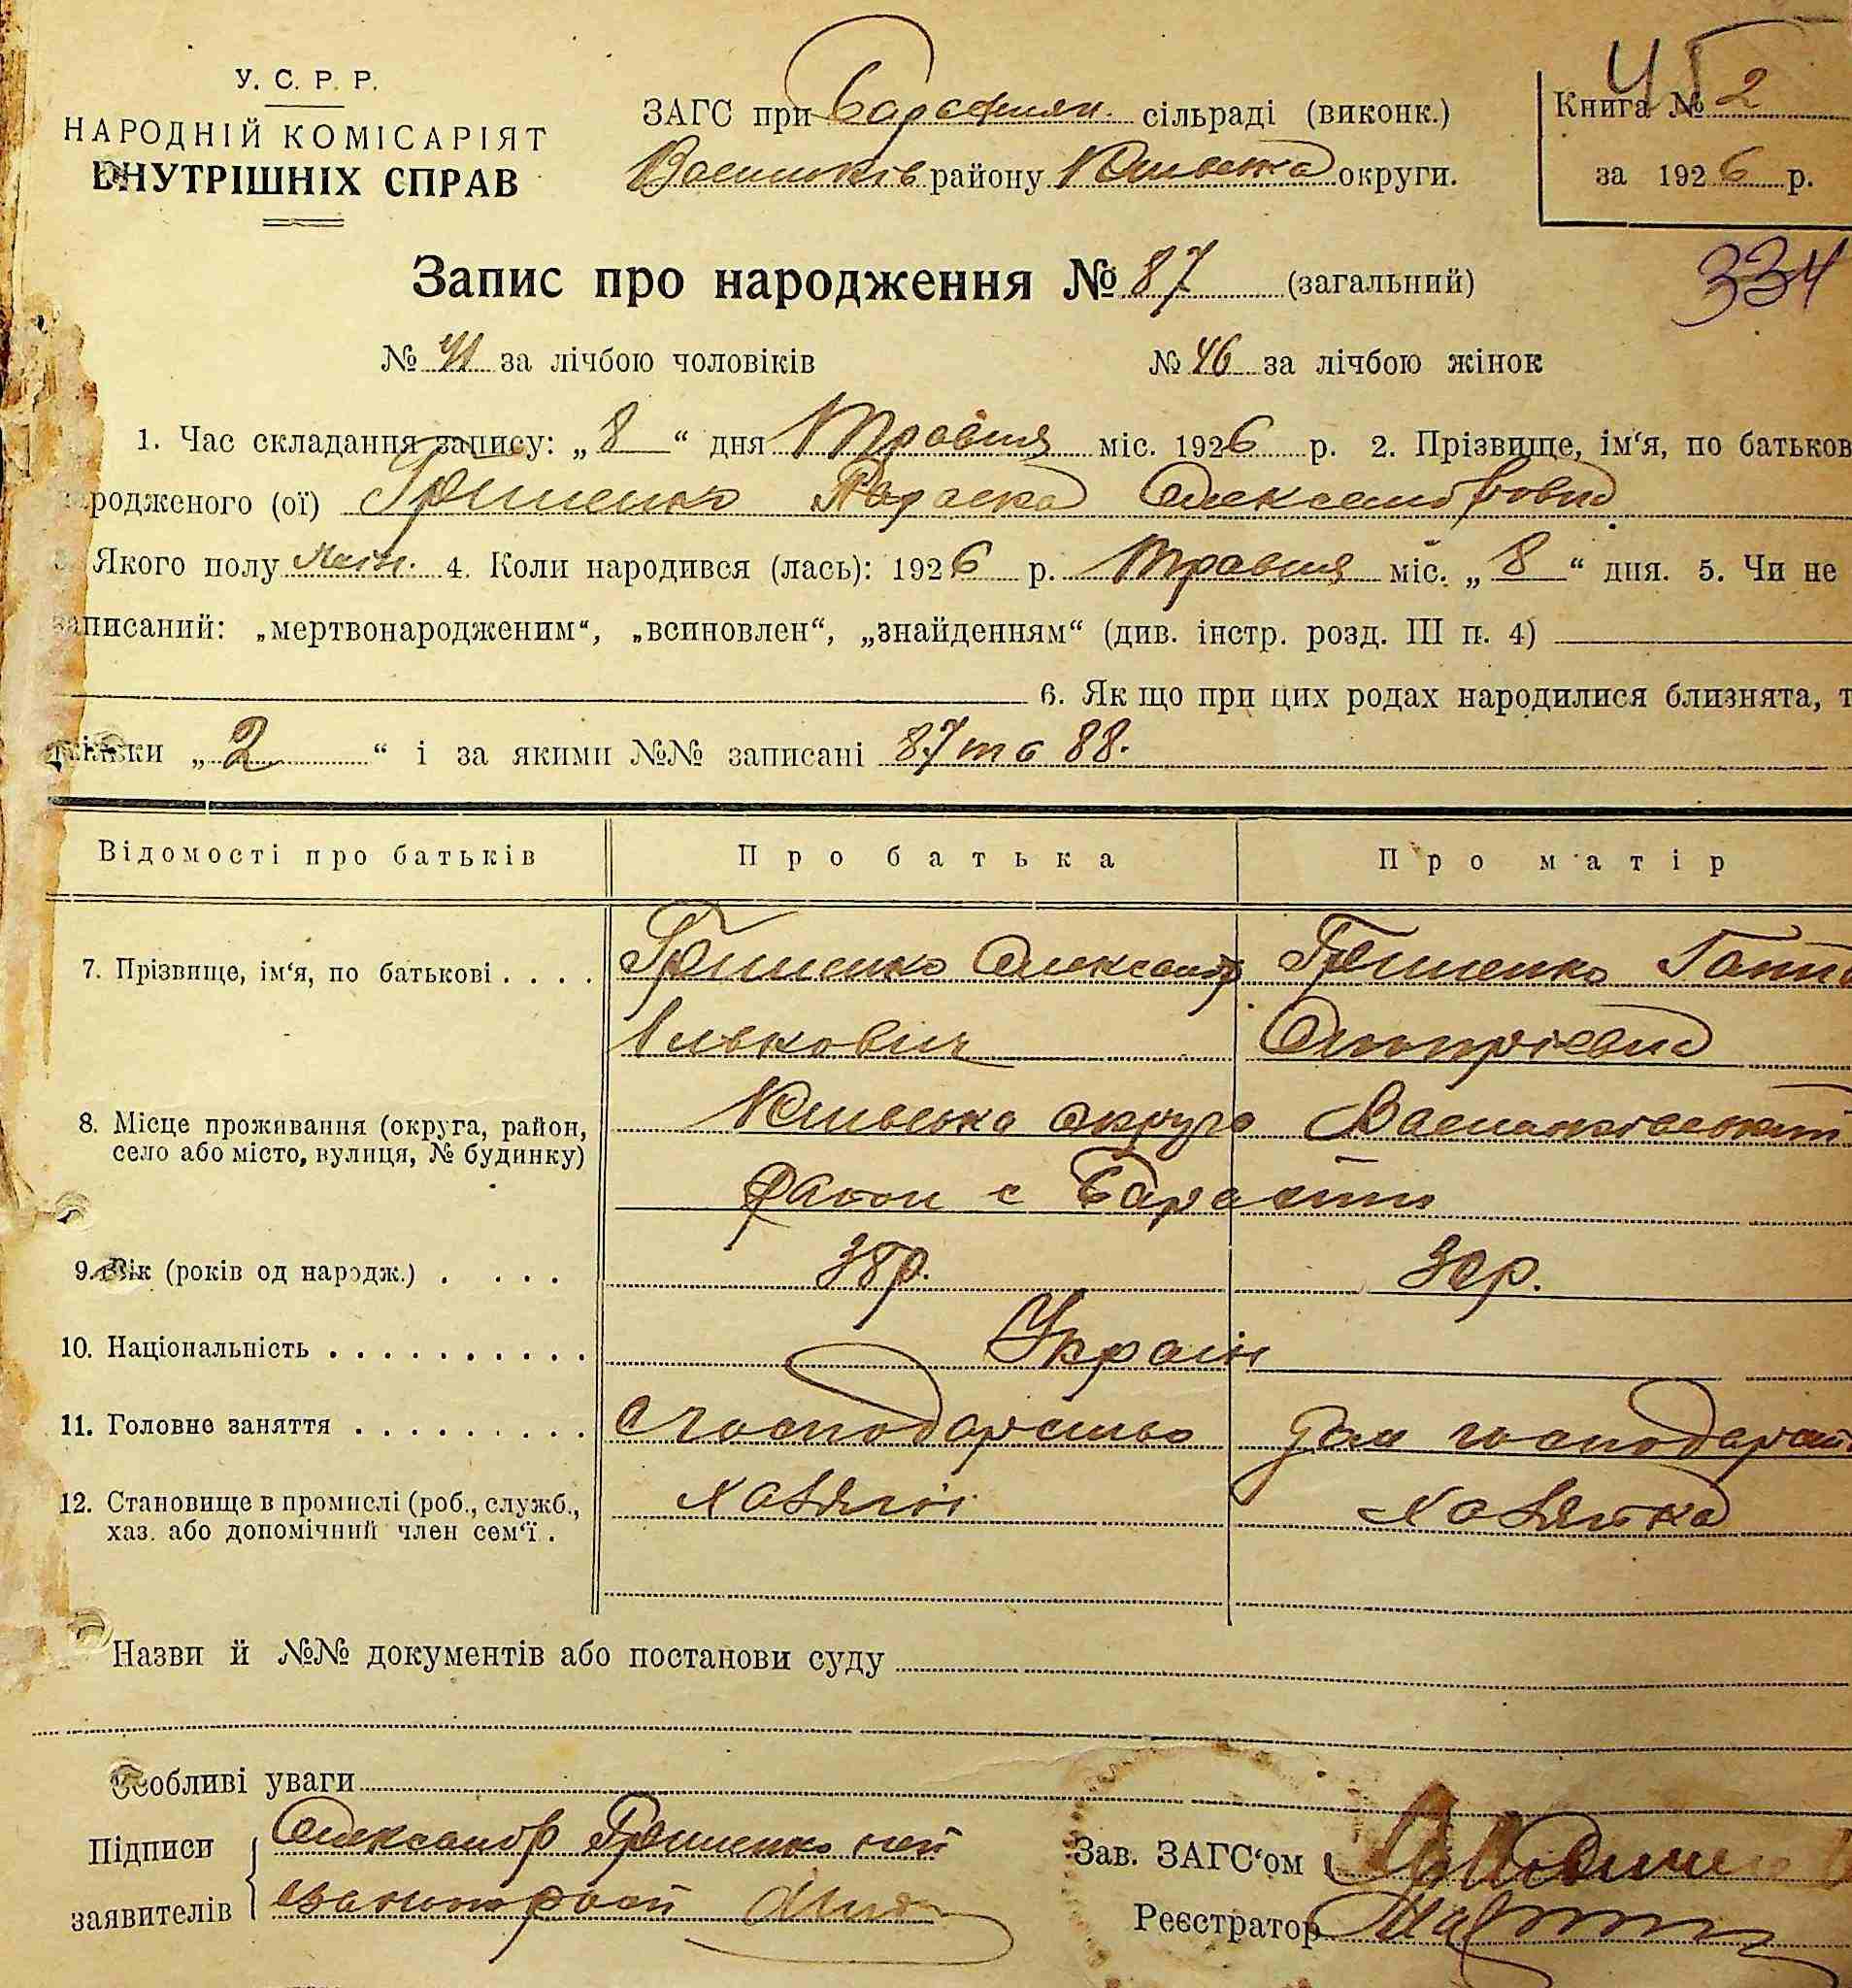 У. С. Р. Р.
НАРОДНІЙ КОМІСАРІЯТ
ВНУТРІШНІХ СПРАВ
ЗАГС при сільраді (виконк.)
Васильків району Київська округи.
Книга № 2
за 1926 р.
334
Запис про народження № 87 (загальний)
№ 41 за лічбою чоловіків № 46 за лічбою жінок
1. Час складання запису: „8“ дня Травня міс. 1926 р. 2. Прізвище, ім‘я, по батьков
родженого (ої) Грищенко Параска Олександровна
Якого полу 4. Коли народився (лась): 1926 р. Травня міс. „8“ дня. 5. Чи не
аписаний: „мертвонародженим“, „всиновлен“, „знайденням“ (див. інстр. розд. III п. 4)
6. Як що при цих родах народилися близнята, т
„2“ і за якими №№ записані 87 та 88.
Відомості про батьків Про батька Про матір
7. Прізвище, ім‘я, по батькові . . . . Грищенко Олександр Грищенко Ганна
Ількович
8. Місце проживання (округа, район, Київська округа Васильківський
село або місто, вулиця, № будинку)
район с Барахти
9. Вік (років од народж.) . . . . 38р. 30р.
10. Національність . . . . . . . . . . Україн
11. Головне заняття . . . . . . . . . . господарство дом господарст
12. Становище в промислі (роб., служб., хазяїн хазяйка
хаз. або допомічний член сем‘ї .
Назви й №№ документів або постанови суду
Особливі уваги
Підписи Олександр Грищенко
заявителів
Зав. ЗАГС‘ом
Реєстратор